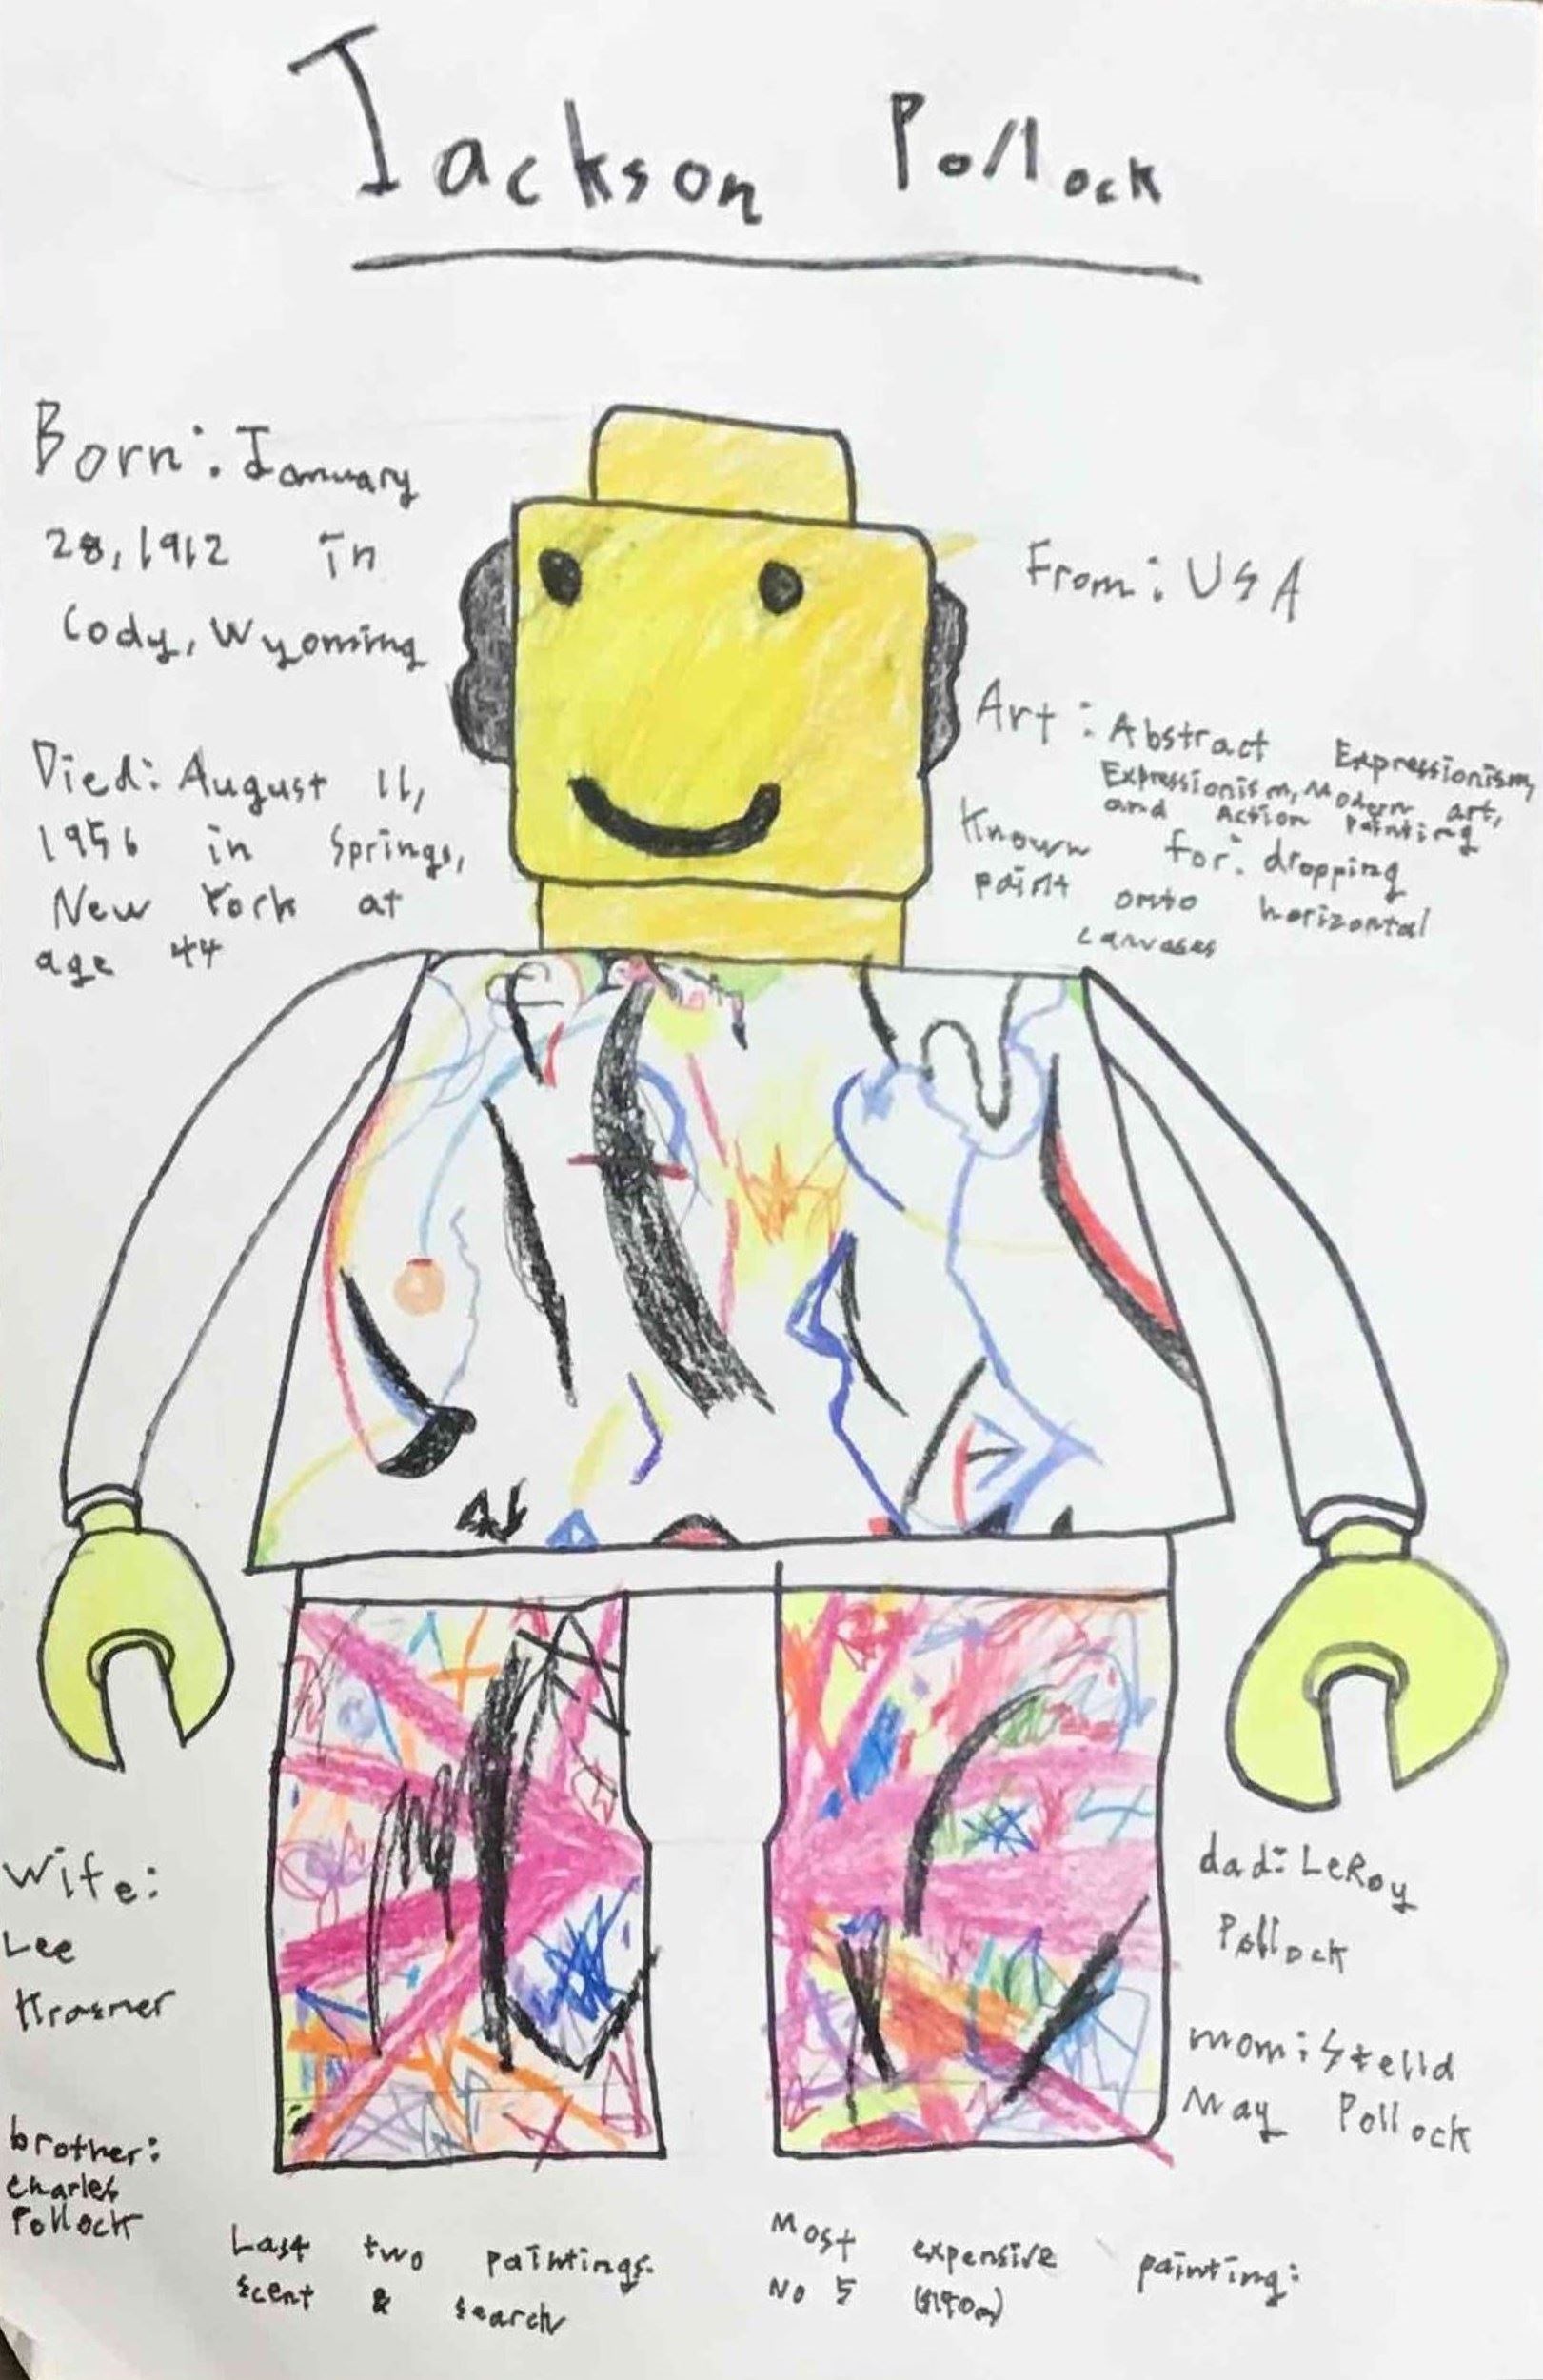 Jackson Pollock
Born: January
28, 1912 in
Cody, Wyoming
Died: August 11,
1956 in Springs,
New York at
age 44
From: USA
Art: Abstract Expressionism,
Expressionism, Modern art,
and Action Painting
Known for: dropping
paint onto horizontal
canvases
Wife:
Lee
Krasner
brother:
Charles
Pollock
dad: LeRoy
Pollock
mom: Stella
May Pollock
Last two paintings:
Scent & Search
Most expensive painting:
No 5 ($140m)